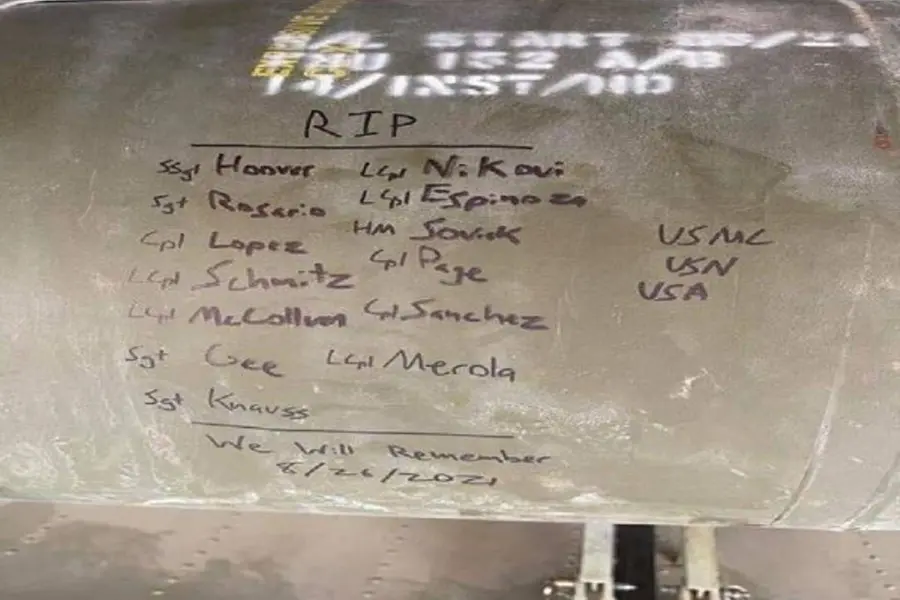 START
152 A/B
/INST/ND
RIP
SSgt Hoover LCpl Nikoui
Sgt Rosario LCpl Espinoza
Cpl Lopez HM Soviak
LCpl Schmitz Cpl Page
LCpl McCollum Cpl Sanchez
Sgt Gee LCpl Merola
Sgt Knauss
USMC
USN
USA
We Will Remember
8/26/2021